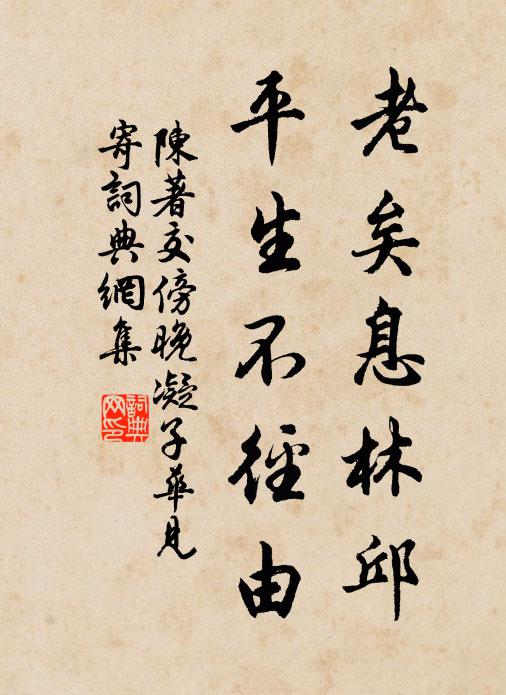 老矣息林邱
平生不徑由
陳著交傍晚凝子華見
寄詞典網集
詞典
网印